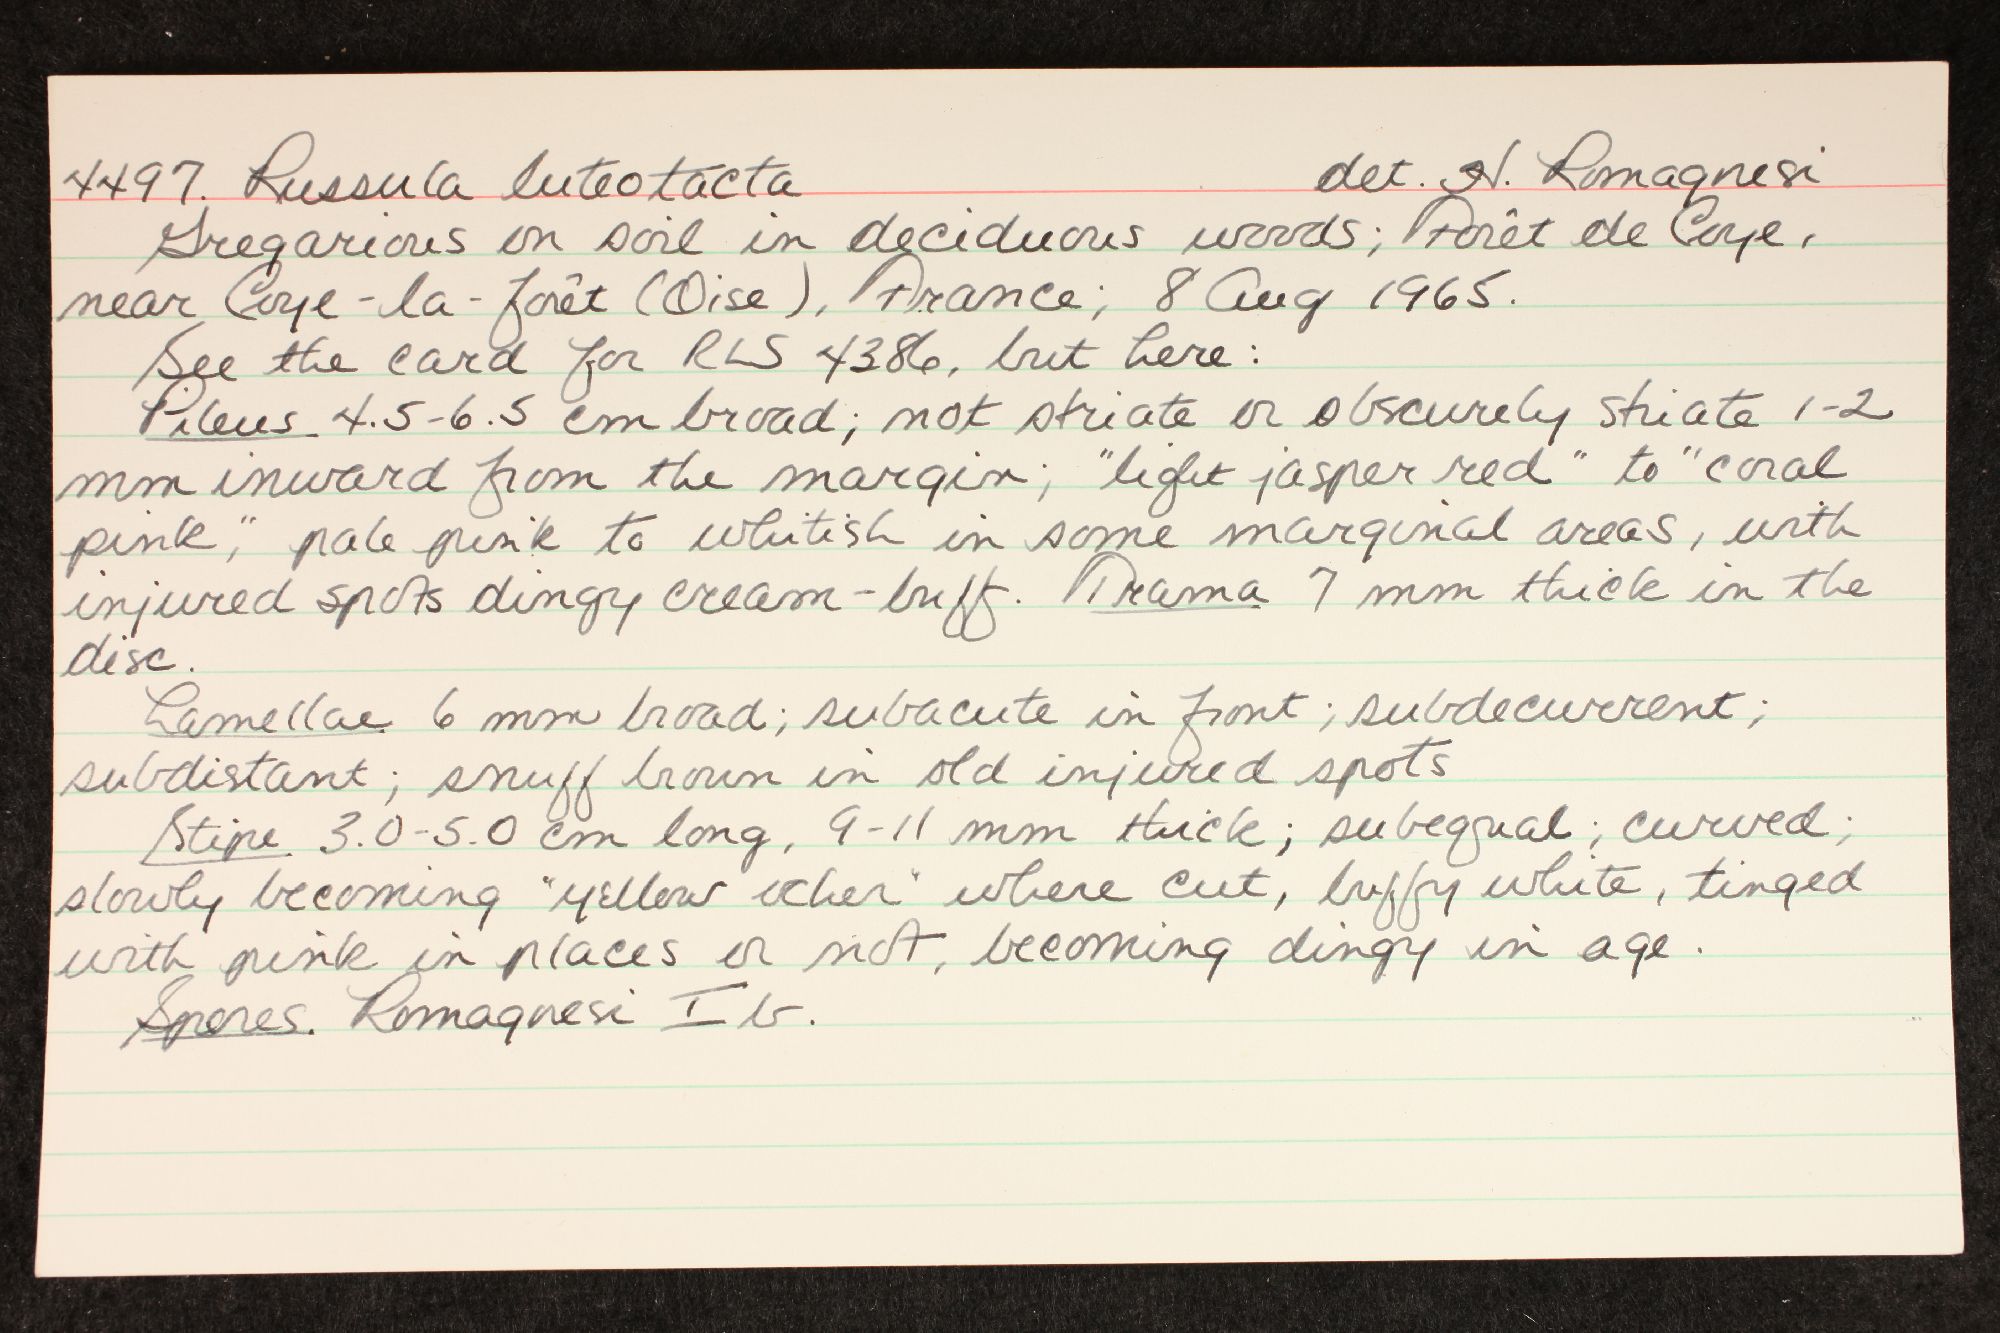 4497. Russula luteotacta det. H. Romagnesi
Gregarious on soil in deciduous woods; Forêt de Coye,
near Coye-la-forêt (Oise), France; 8 Aug 1965.
See the card for RLS 4386, but here:
Pileus 4.5-6.5 cm broad; not striate or obscurely striate 1-2
mm inward from the margin; "light jasper red" to "coral
pink," pale pink to whitish in some marginal areas, with
injured spots dingy cream-buff. Trama 7 mm thick in the
disc.
Lamellae 6 mm broad; subacute in front; subdecurrent;
subdistant; snuff brown in old injured spots
Stipe 3.0-5.0 cm long, 9-11 mm thick; subequal; curved;
slowly becoming "yellow ocher" where cut, buffy white, tinged
with pink in places or not, becoming dingy in age.
Spores. Romagnesi I b.